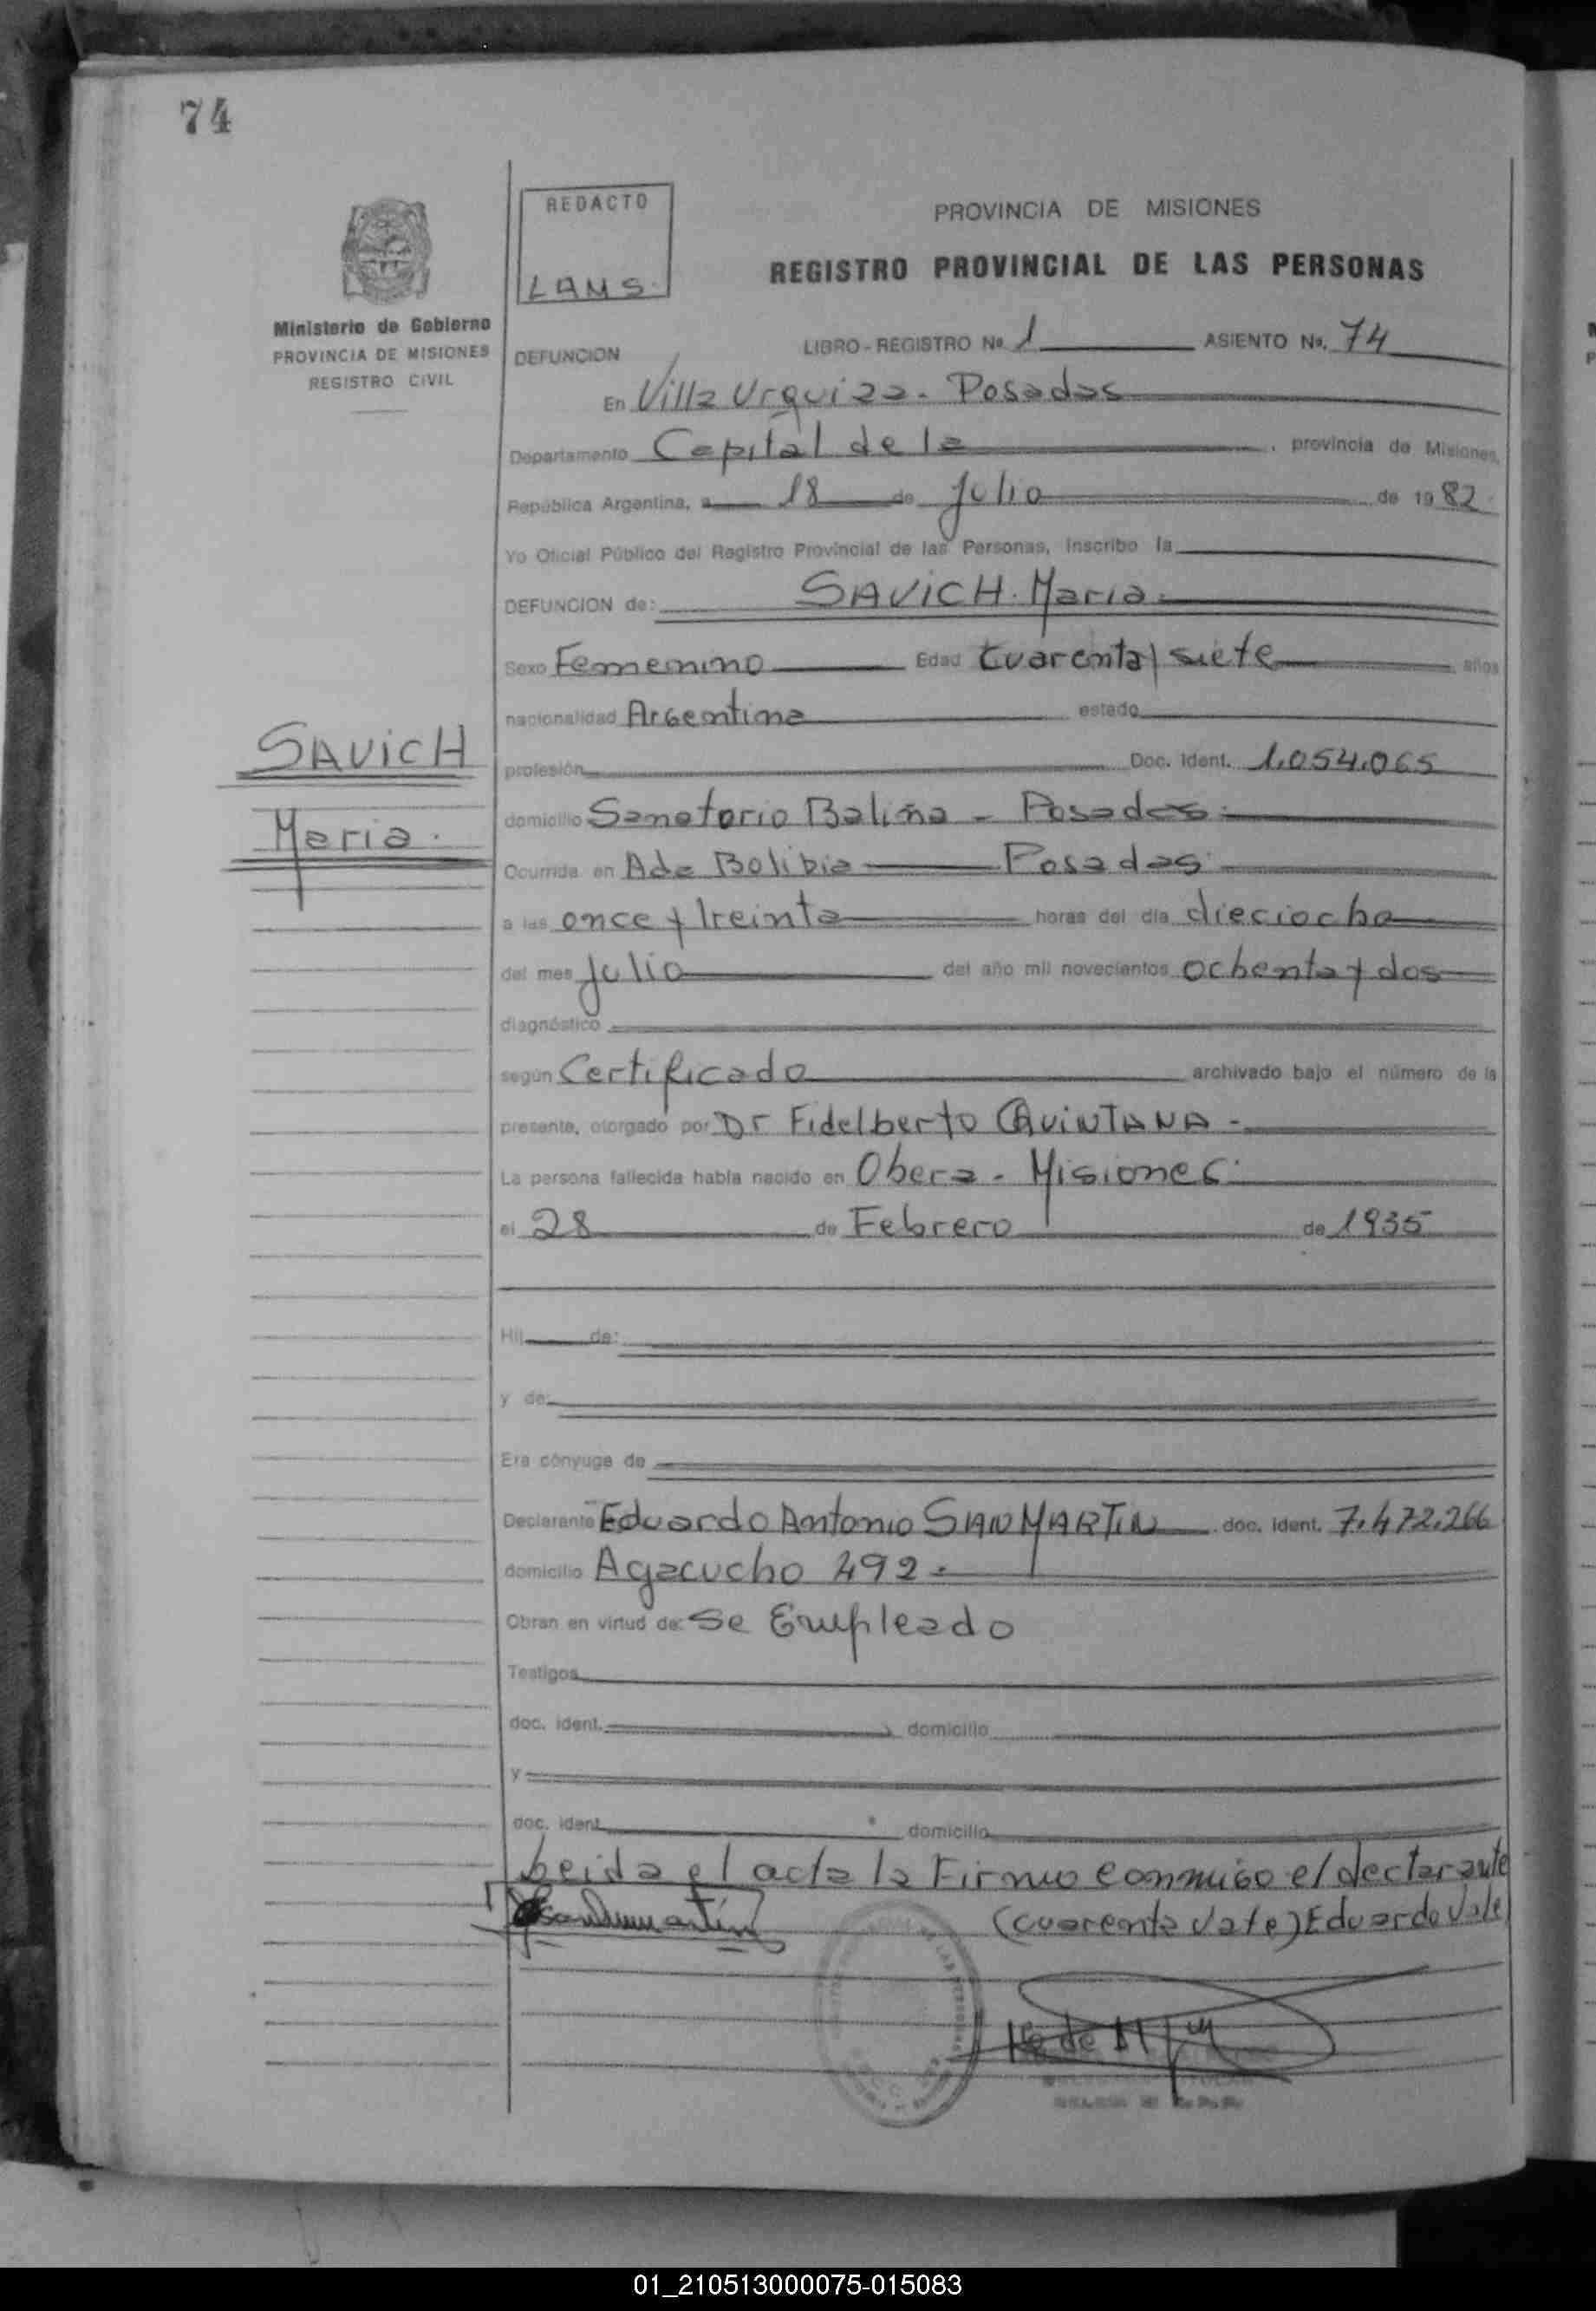 74
REDACTO
LAMS.
Ministerio de Gobierno
PROVINCIA DE MISIONES
REGISTRO CIVIL
PROVINCIA DE MISIONES
REGISTRO PROVINCIAL DE LAS PERSONAS
LIBRO - REGISTRO Nº 1 ASIENTO Nº. 74
DEFUNCION
En Villa Urquiza - Posadas
Departamento Capital de la , provincia de Misiones,
República Argentina, a 18 de Julio de 1982
Yo Oficial Público del Registro Provincial de las Personas, inscribo la
DEFUNCION de: SAVICH. Maria.
Sexo Femenino Edad Cuarenta y siete años
nacionalidad Argentina estado
SAVICH
Maria.
profesión Doc. Ident. 1.054.065
domicilio Sanatorio Baliña - Posadas.
Ocurrida en Ada Bolibia Posadas
a las once y treinta horas del día dieciocho
del mes Julio del año mil novecientos ochenta y dos
diagnóstico
según Certificado archivado bajo el número de la
presente, otorgado por Dr Fidelberto QUINTANA -
La persona fallecida había nacido en Obera - Misiones.
el 28 de Febrero de 1935
Hij de:
y de:
Era cónyuge de
Declarante Eduardo Antonio SAN MARTIN doc. ident. 7.472.266
domicilio Ayacucho 492.
Obran en virtud de: Se Empleado
Testigos
doc. ident. domicilio
y
doc. ident. domicilio
Leida el acta la Firma conmigo el declarante
(cuarenta Vale) Eduardo Vale
01_210513000075-015083